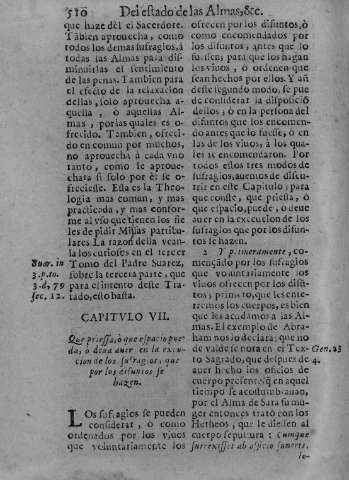 510 Del estado de las Almas, &c.
que haze dèl el Sacerdote.
Tãbien aprouecha, como
todos los demas sufragios, à
todas las Almas para dis-
minuirlas el sentimiento
de las penas. Tambien para
el efecto de la relaxacion
dellas, solo aprouecha a-
quella, ò aquellas Al-
mas, por las quales es o-
frecido. Tambien, ofreci-
do en comun por muchos,
no aprouecha à cada vno
tanto, como le aproue-
chara si solo por èl se o-
freciesse. Esta es la Theo-
logia mas comun, y mas
practicada, y mas confor-
me al vso que tienen los fie-
les de pidir Missas particu-
lares. La razon della vean-
la los curiosos en el tercer
Tomo del Padre Suarez,
sobre la tercera parte, que
para el intento deste Tra-
tado, esto basta.
Suar. in
3. p. to.
3. d. 79
sec. 12.
CAPITVLO VII.
Que priessa, ò que espacio pue-
da, o deua auer en la execu-
cion de los sufragios, que
por los difuntos se
hazen.
LOs sufragios se pueden
considerar, ò como
ordenados por los viuos
que voluntariamente los
ofrecen por los difuntos, ò
como encomendados por
los difuntos, antes que lo
fuessen, para que los hagan
los viuos, ò ordenen que
sean hechos por ellos. Y añ
deste segundo modo, se pue
de considerar la disposiciõ
dellos, ò en la persona del
difuntos que los encomen-
do antes que lo fuesse, ò en
las de los viuos, à los qua-
les se encomendaron. Por
todos estos tres modos de
sufragios, auemos de discu-
rrir en este Capitulo; para
que conste, que priessa, ò
que espacio, puede, ò deue
auer en la execucion de los
sufragios que por los difun-
tos se hazen.
2 Y primeramente, co-
mençado por los sufragios
que voluntariamente los
viuos ofrecen por los difun-
tos; primero, que les ente-
rremos los cuerpos, es bien
que les ayudamos a las Al-
mas. El exemplo de Abra-
ham nos lo declara; que no
de valde se nota en el Tex-
to Sagrado, que despues de
auer hecho los oficios de
cuerpo presente, q̃ en aquel
tiempo se acostumbrauan,
por el Alma de Sara su mu-
ger entonces trató con los
Hetheos, que le diessen al
cuerpo sepultura: Cumque
surrexisset ab officio funeris,
Gen. 23
4.
lo-